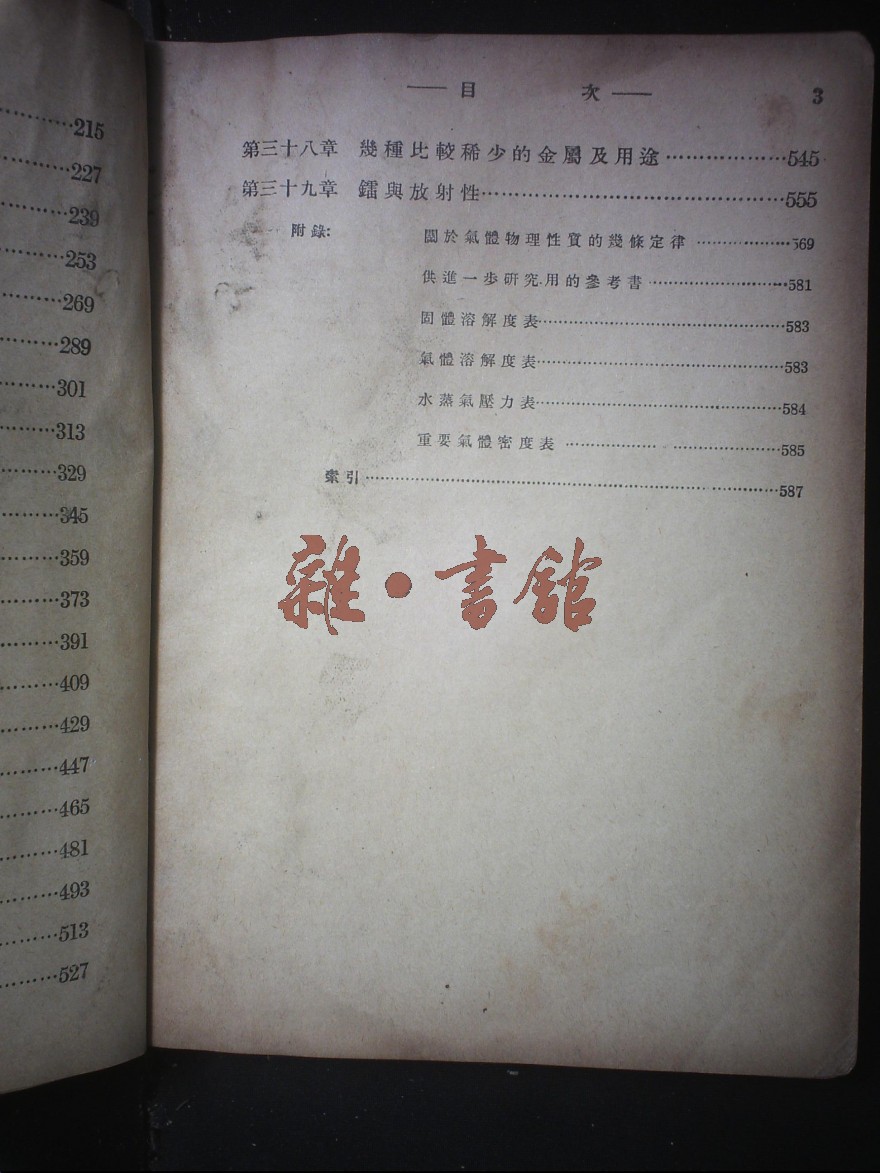 215
227
239
253
269
289
301
313
329
345
359
373
391
409
429
447
465
481
493
513
527
——目 次—— 3
第三十八章 幾種比較稀少的金屬及用途………………545
第三十九章 鐳與放射性…………………………………555
附錄: 關於氣體物理性質的幾條定律………………569
供進一步研究用的參考書………………581
固體溶解度表………………………………583
氣體溶解度表………………………………583
水蒸氣壓力表………………………………584
重要氣體密度表……………………………585
索引…………………………………………………587
雜·書館